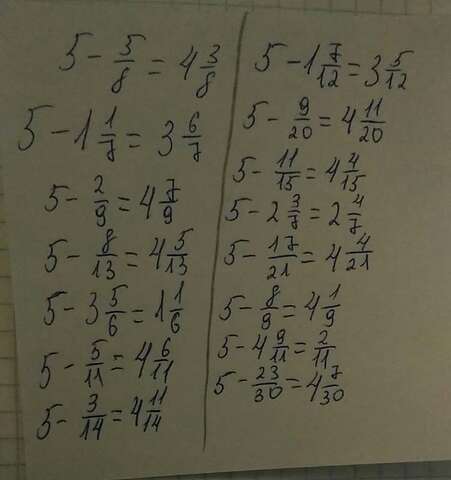 5 - 5/8 = 4 3/8
5 - 1 1/7 = 3 6/7
5 - 2/9 = 4 7/9
5 - 8/13 = 4 5/13
5 - 3 5/6 = 1 1/6
5 - 5/11 = 4 6/11
5 - 3/14 = 4 11/14
5 - 1 7/12 = 3 5/12
5 - 9/20 = 4 11/20
5 - 11/15 = 4 4/15
5 - 2 3/7 = 2 4/7
5 - 17/21 = 4 4/21
5 - 8/9 = 4 1/9
5 - 4 9/11 = 2/11
5 - 23/30 = 4 7/30